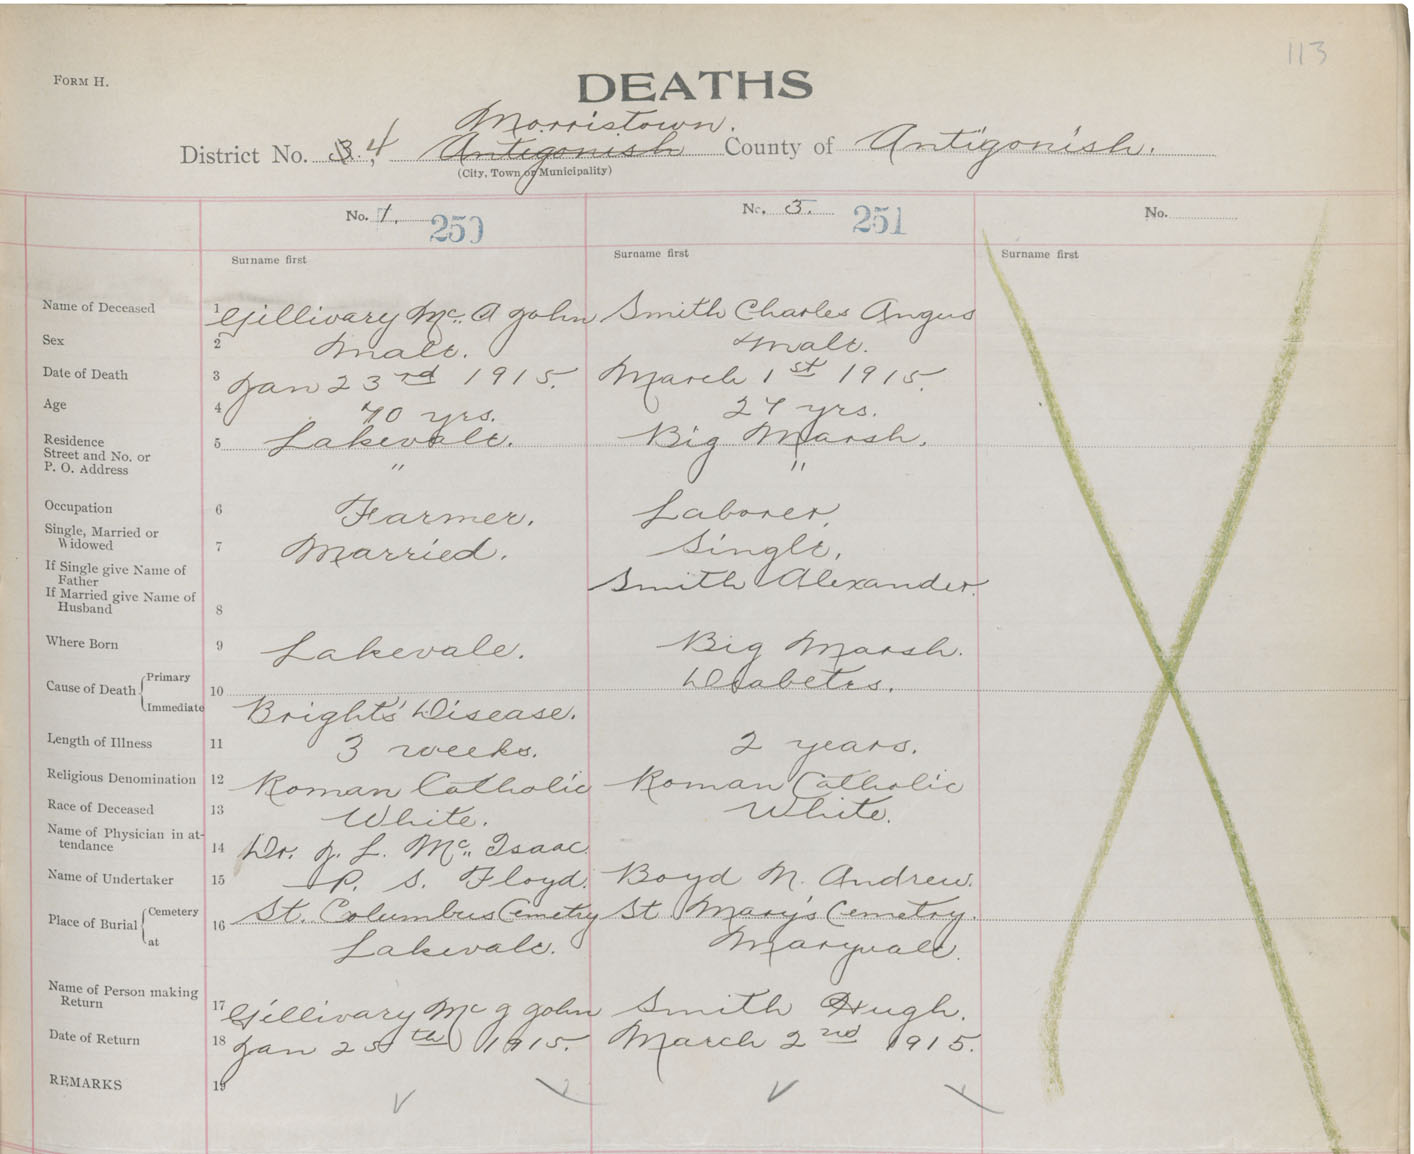 113
FORM H.
DEATHS
Morristown.
District No. 3. 4 Antigonish County of Antigonish.
(City, Town or Municipality)
No. 1. 250 No. 3. 251 No.
Surname first Surname first Surname first
Name of Deceased 1 Gillivary Mc. A John Smith Charles Angus
Sex 2 Male. Male.
Date of Death 3 Jan 23rd 1915. March 1st 1915.
Age 4 70 yrs. 27 yrs.
Residence
Street and No. or 5 Lakevale. Big Marsh.
P. O. Address " "
Occupation 6 Farmer. Laborer.
Single, Married or
Widowed 7 Married. Single.
If Single give Name of
Father Smith Alexander.
If Married give Name of
Husband 8
Where Born 9 Lakevale. Big Marsh.
Cause of Death Primary 10 Diabetes.
Immediate Bright's Disease.
Length of Illness 11 3 weeks. 2 years.
Religious Denomination 12 Roman Catholic Roman Catholic
Race of Deceased 13 White. White.
Name of Physician in at-
tendance 14 Dr. J. L. Mc. Isaac.
Name of Undertaker 15 P. S. Floyd. Boyd N. Andrew.
Place of Burial Cemetery 16 St. Columbus Cemetry St. Mary's Cemetry.
at Lakevale. Maryvale.
Name of Person making
Return 17 Gillivary Mc J John Smith Hugh.
Date of Return 18 Jan 25th 1915. March 2nd 1915.
REMARKS 19